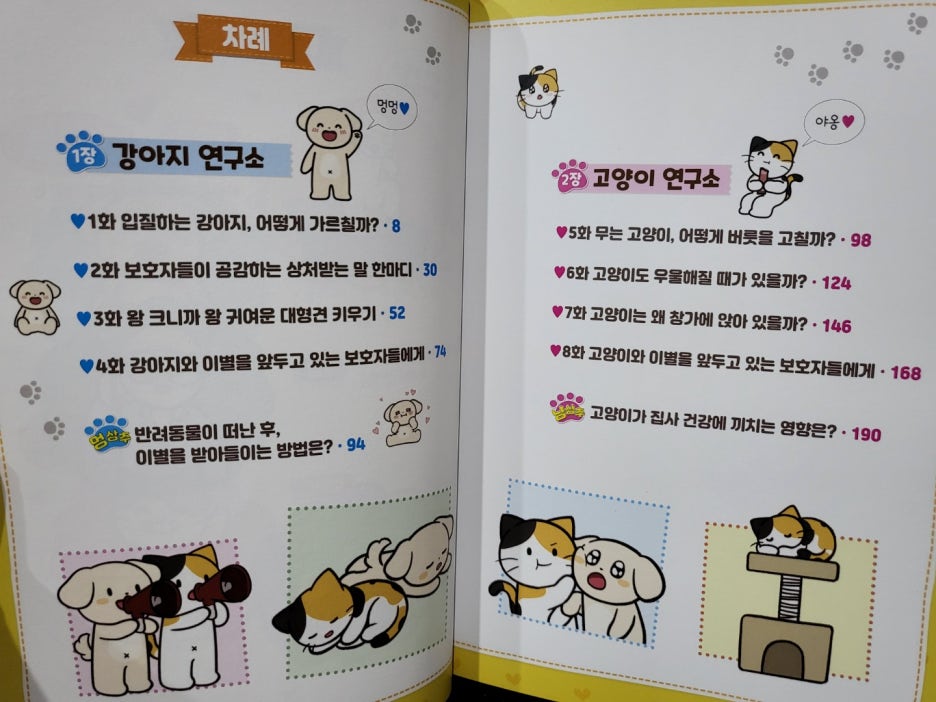 차례
멍멍♥
1장 강아지 연구소
♥1화 입질하는 강아지, 어떻게 가르칠까? · 8
♥2화 보호자들이 공감하는 상처받는 말 한마디 · 30
♥3화 왕 크니까 왕 귀여운 대형견 키우기 · 52
♥4화 강아지와 이별을 앞두고 있는 보호자들에게 · 74
멍상추 반려동물이 떠난 후,
이별을 받아들이는 방법은? · 94
야옹♥
2장 고양이 연구소
♥5화 무는 고양이, 어떻게 버릇을 고칠까? · 98
♥6화 고양이도 우울해질 때가 있을까? · 124
♥7화 고양이는 왜 창가에 앉아 있을까? · 146
♥8화 고양이와 이별을 앞두고 있는 보호자들에게 · 168
냥상추 고양이가 집사 건강에 끼치는 영향은? · 190